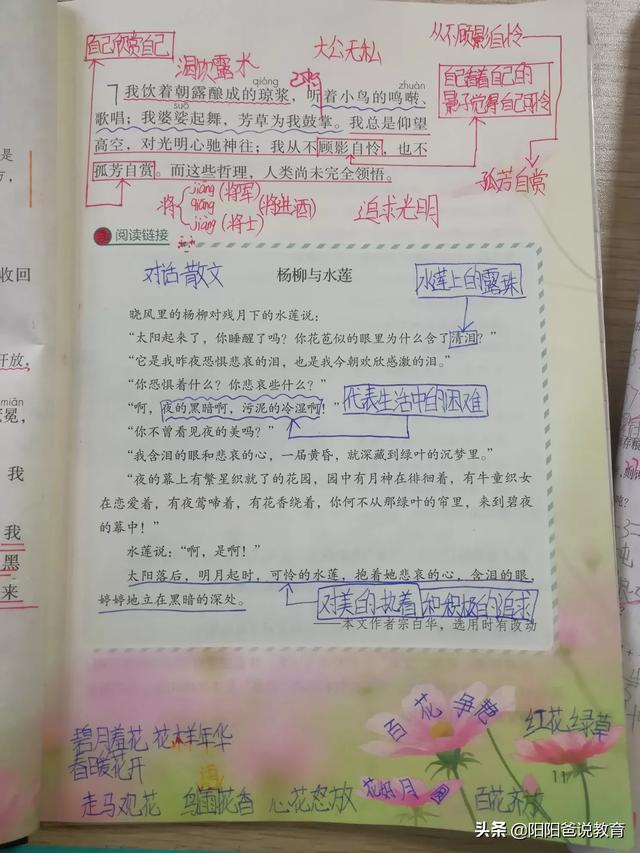 自己欣赏自己
渴饮露水
大公无私
从不顾影自怜
自己看着自己的
影子觉得自己可怜
孤芳自赏
qióng
zhuàn
7 我饮着朝露酿成的琼浆，听着小鸟的鸣啭、
suō
歌唱；我婆娑起舞，芳草为我鼓掌。我总是仰望
高空，对光明心驰神往；我从不顾影自怜，也不
孤芳自赏。而这些哲理，人类尚未完全领悟。
将
jiāng（将军）
qiāng（将进酒）
jiàng（将士）
追求光明
阅读链接
对话散文
杨柳与水莲
水莲上的露珠
晓风里的杨柳对残月下的水莲说：
“太阳起来了，你睡醒了吗？你花苞似的眼里为什么含了清泪？”
“它是我昨夜恐惧悲哀的泪，也是我今朝欢欣感激的泪。”
“你恐惧着什么？你悲哀些什么？”
“啊，夜的黑暗啊，污泥的冷湿啊！”
代表生活中的困难
“你不曾看见夜的美吗？”
“我含泪的眼和悲哀的心，一届黄昏，就深藏到绿叶的沉梦里。”
“夜的幕上有繁星织就了的花园，园中有月神在徘徊着，有牛童织女
在恋爱着，有夜莺啼着，有花香绕着，你何不从那绿叶的帘里，来到碧夜
的幕中！”
水莲说：“啊，是啊！”
太阳落后，明月起时，可怜的水莲，抱着她悲哀的心，含泪的眼，
婷婷地立在黑暗的深处。
对美的执着和积极的追求
——本文作者宗白华，选用时有改动
碧月羞花 花样年华
春暖花开
走马观花 鸟语花香 心花怒放
百花争艳
花好月圆
红花绿草
百花齐放
11
收回
开放，
miān
冤，
我
我
黑
来
头条 @阳阳爸说教育